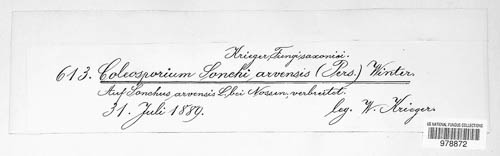 Krieger, Fungi saxonici.
613. Coleosporium Sonchi arvensis (Pers.) Winter.
Auf Sonchus arvensis L. bei Nossen, verbreitet.
31. Juli 1889. leg. W. Krieger.
US NATIONAL FUNGUS COLLECTIONS
978872